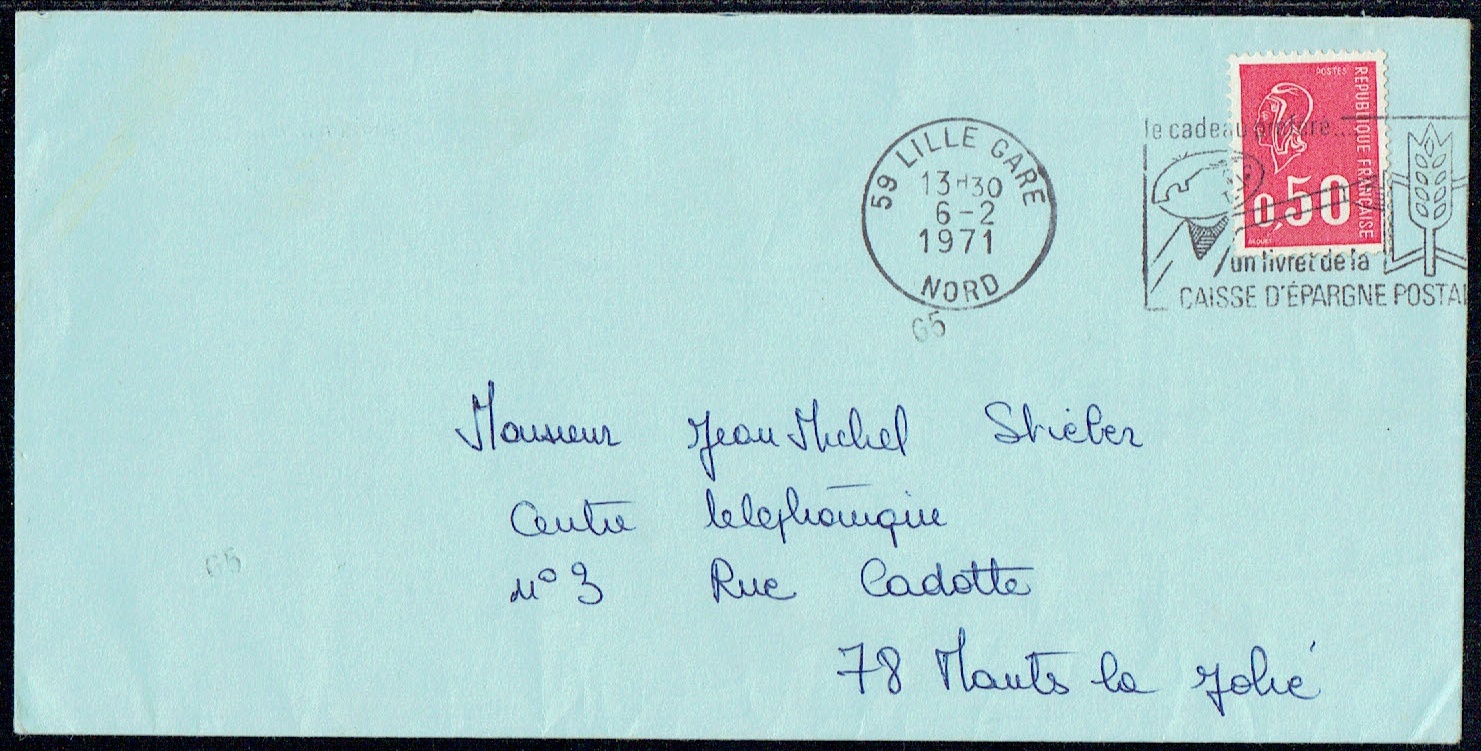 POSTES
REPUBLIQUE FRANÇAISE
0,50
59 LILLE GARE
13H30
6-2
1971
NORD
G5
le cadeau préféré...
un livret de la
CAISSE D'ÉPARGNE POSTAL
Monsieur Jean Michel Stiéber
Centre telephonique
n° 3 Rue Cadotte
78 Mants la Jolié
G5